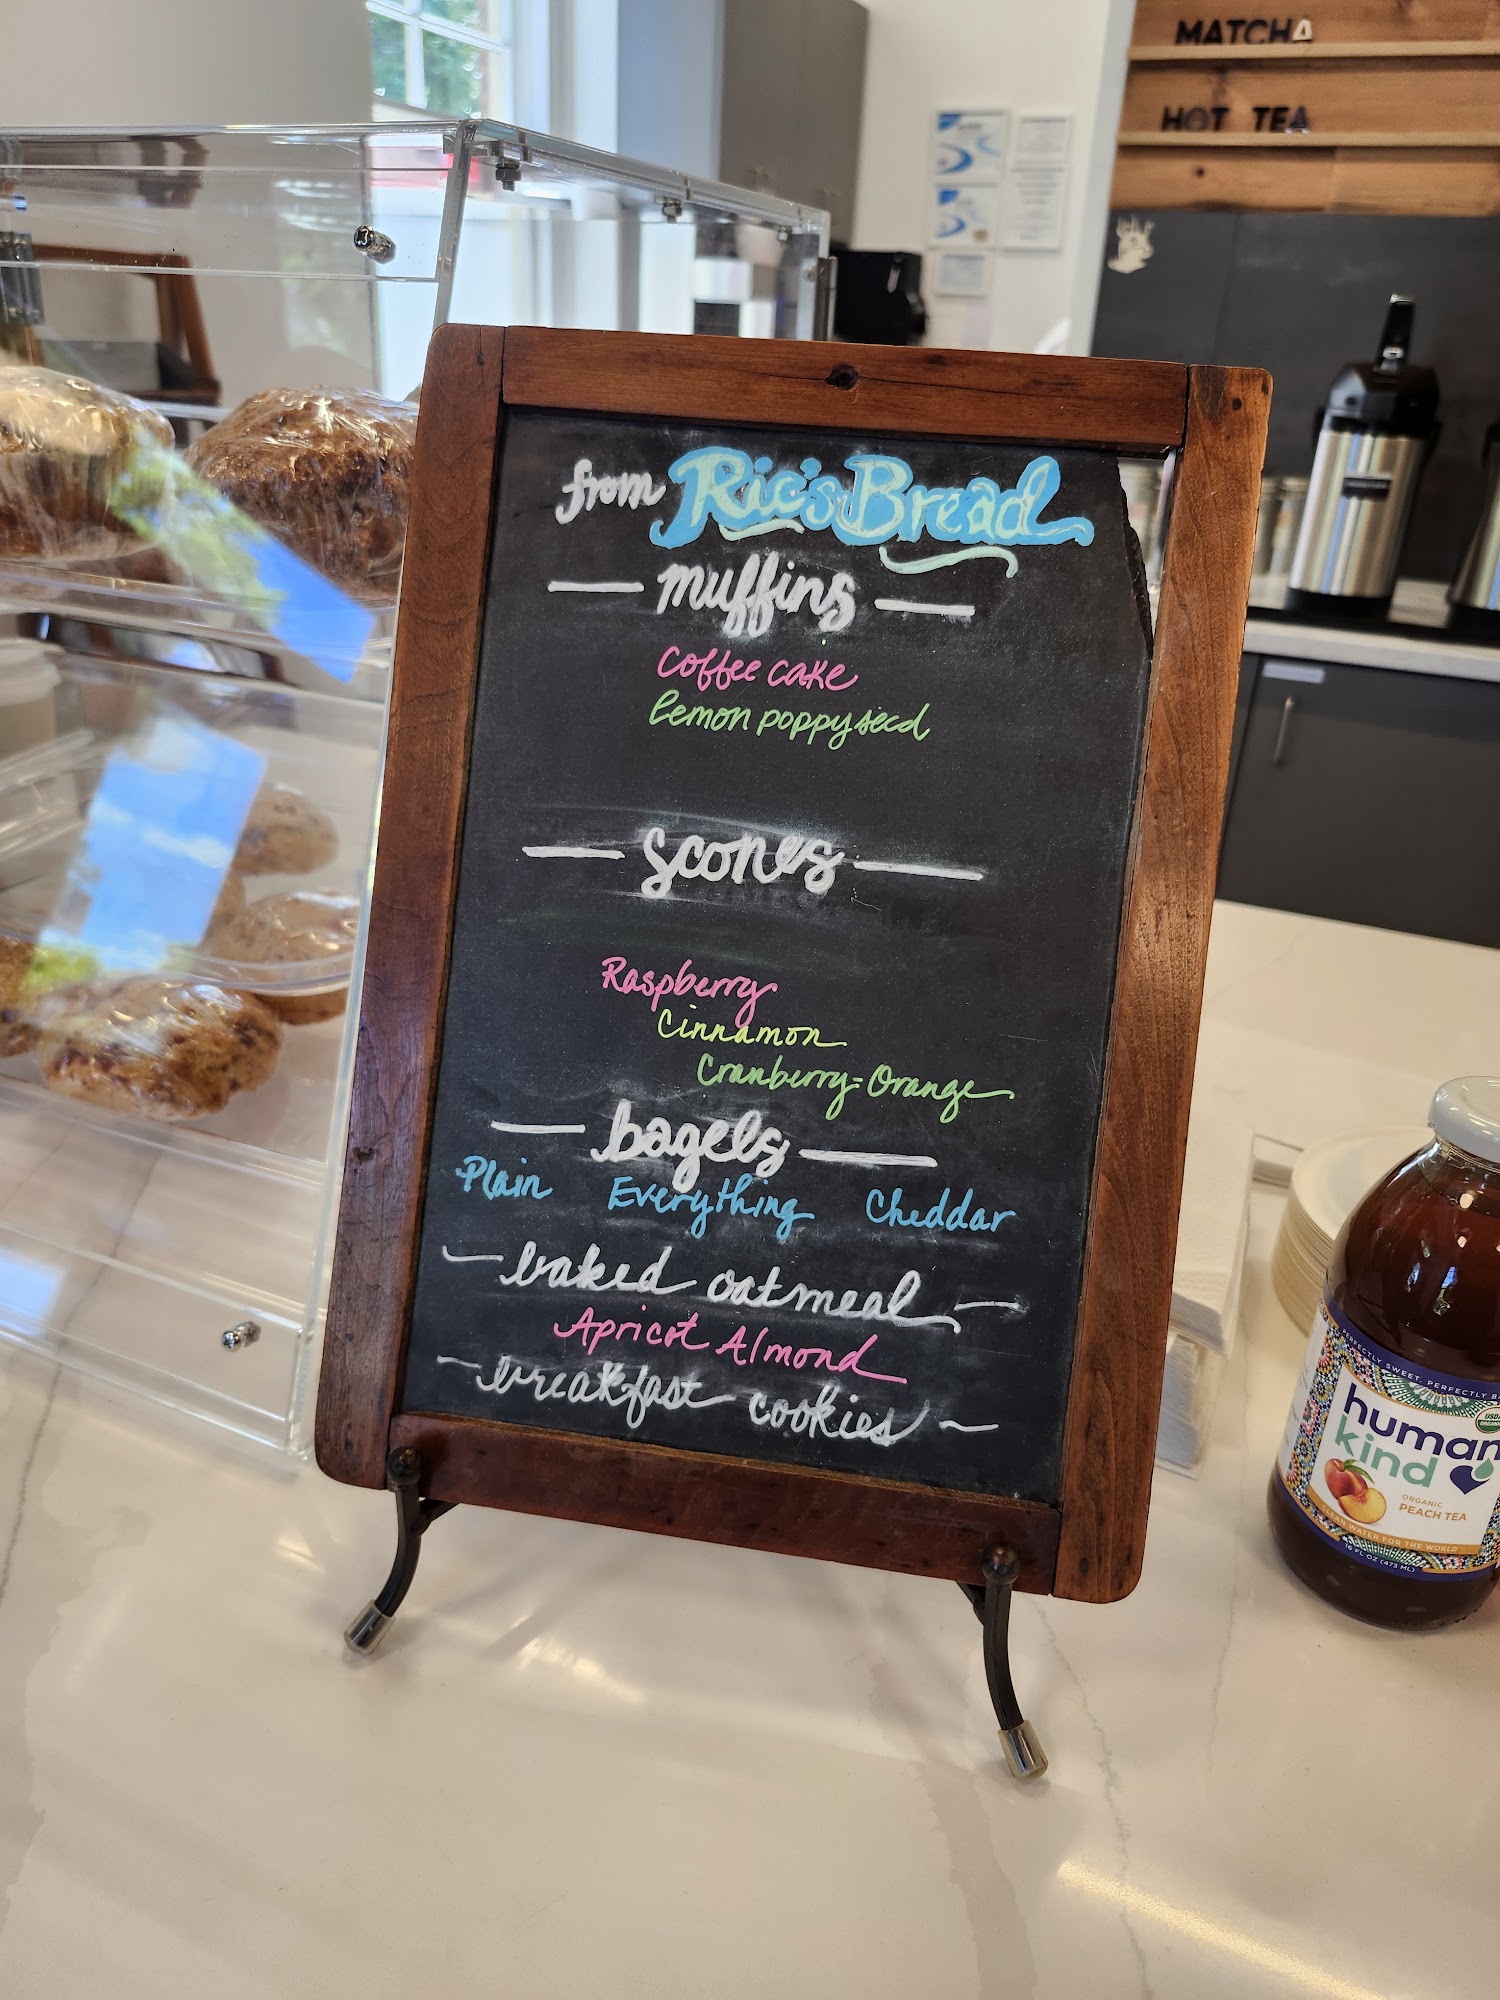 MATCHA
HOT TEA
from Ric's Bread
muffins
Coffee cake
lemon poppyseed
scones
Raspberry
Cinnamon
Cranberry-Orange
bagels
Plain Everything Cheddar
baked oatmeal
Apricot Almond
breakfast cookies
PERFECTLY SWEET. PERFECTLY
human
kind
USDA
ORGANIC
ORGANIC
PEACH TEA
CLEAN WATER FOR THE WORLD
16 FL OZ (473 ML)